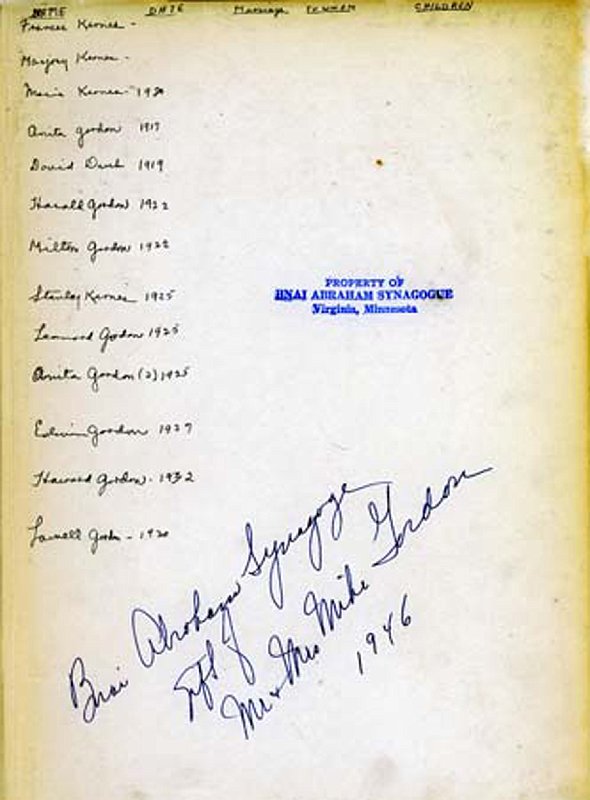 NAME DATE Marriage To WHOM CHILDREN
Frances Karnes -
Marjory Karnes -
Marie Karnes - 19
Anita Gordon 1917
David Deuch 1919
Harold Gordon 1922
Milton Gordon 1922
Stanley Karnes 1925
Leonard Gordon 1925
Anita Gordon (2) 1925
Edwin Gordon 1927
Howard Gordon - 1932
Lowell Gordon - 1930
PROPERTY OF
BNAI ABRAHAM SYNAGOGUE
Virginia, Minnesota
Bnai Abraham Synagoge
gift of
Mr & Mrs Mike Gordon
1946